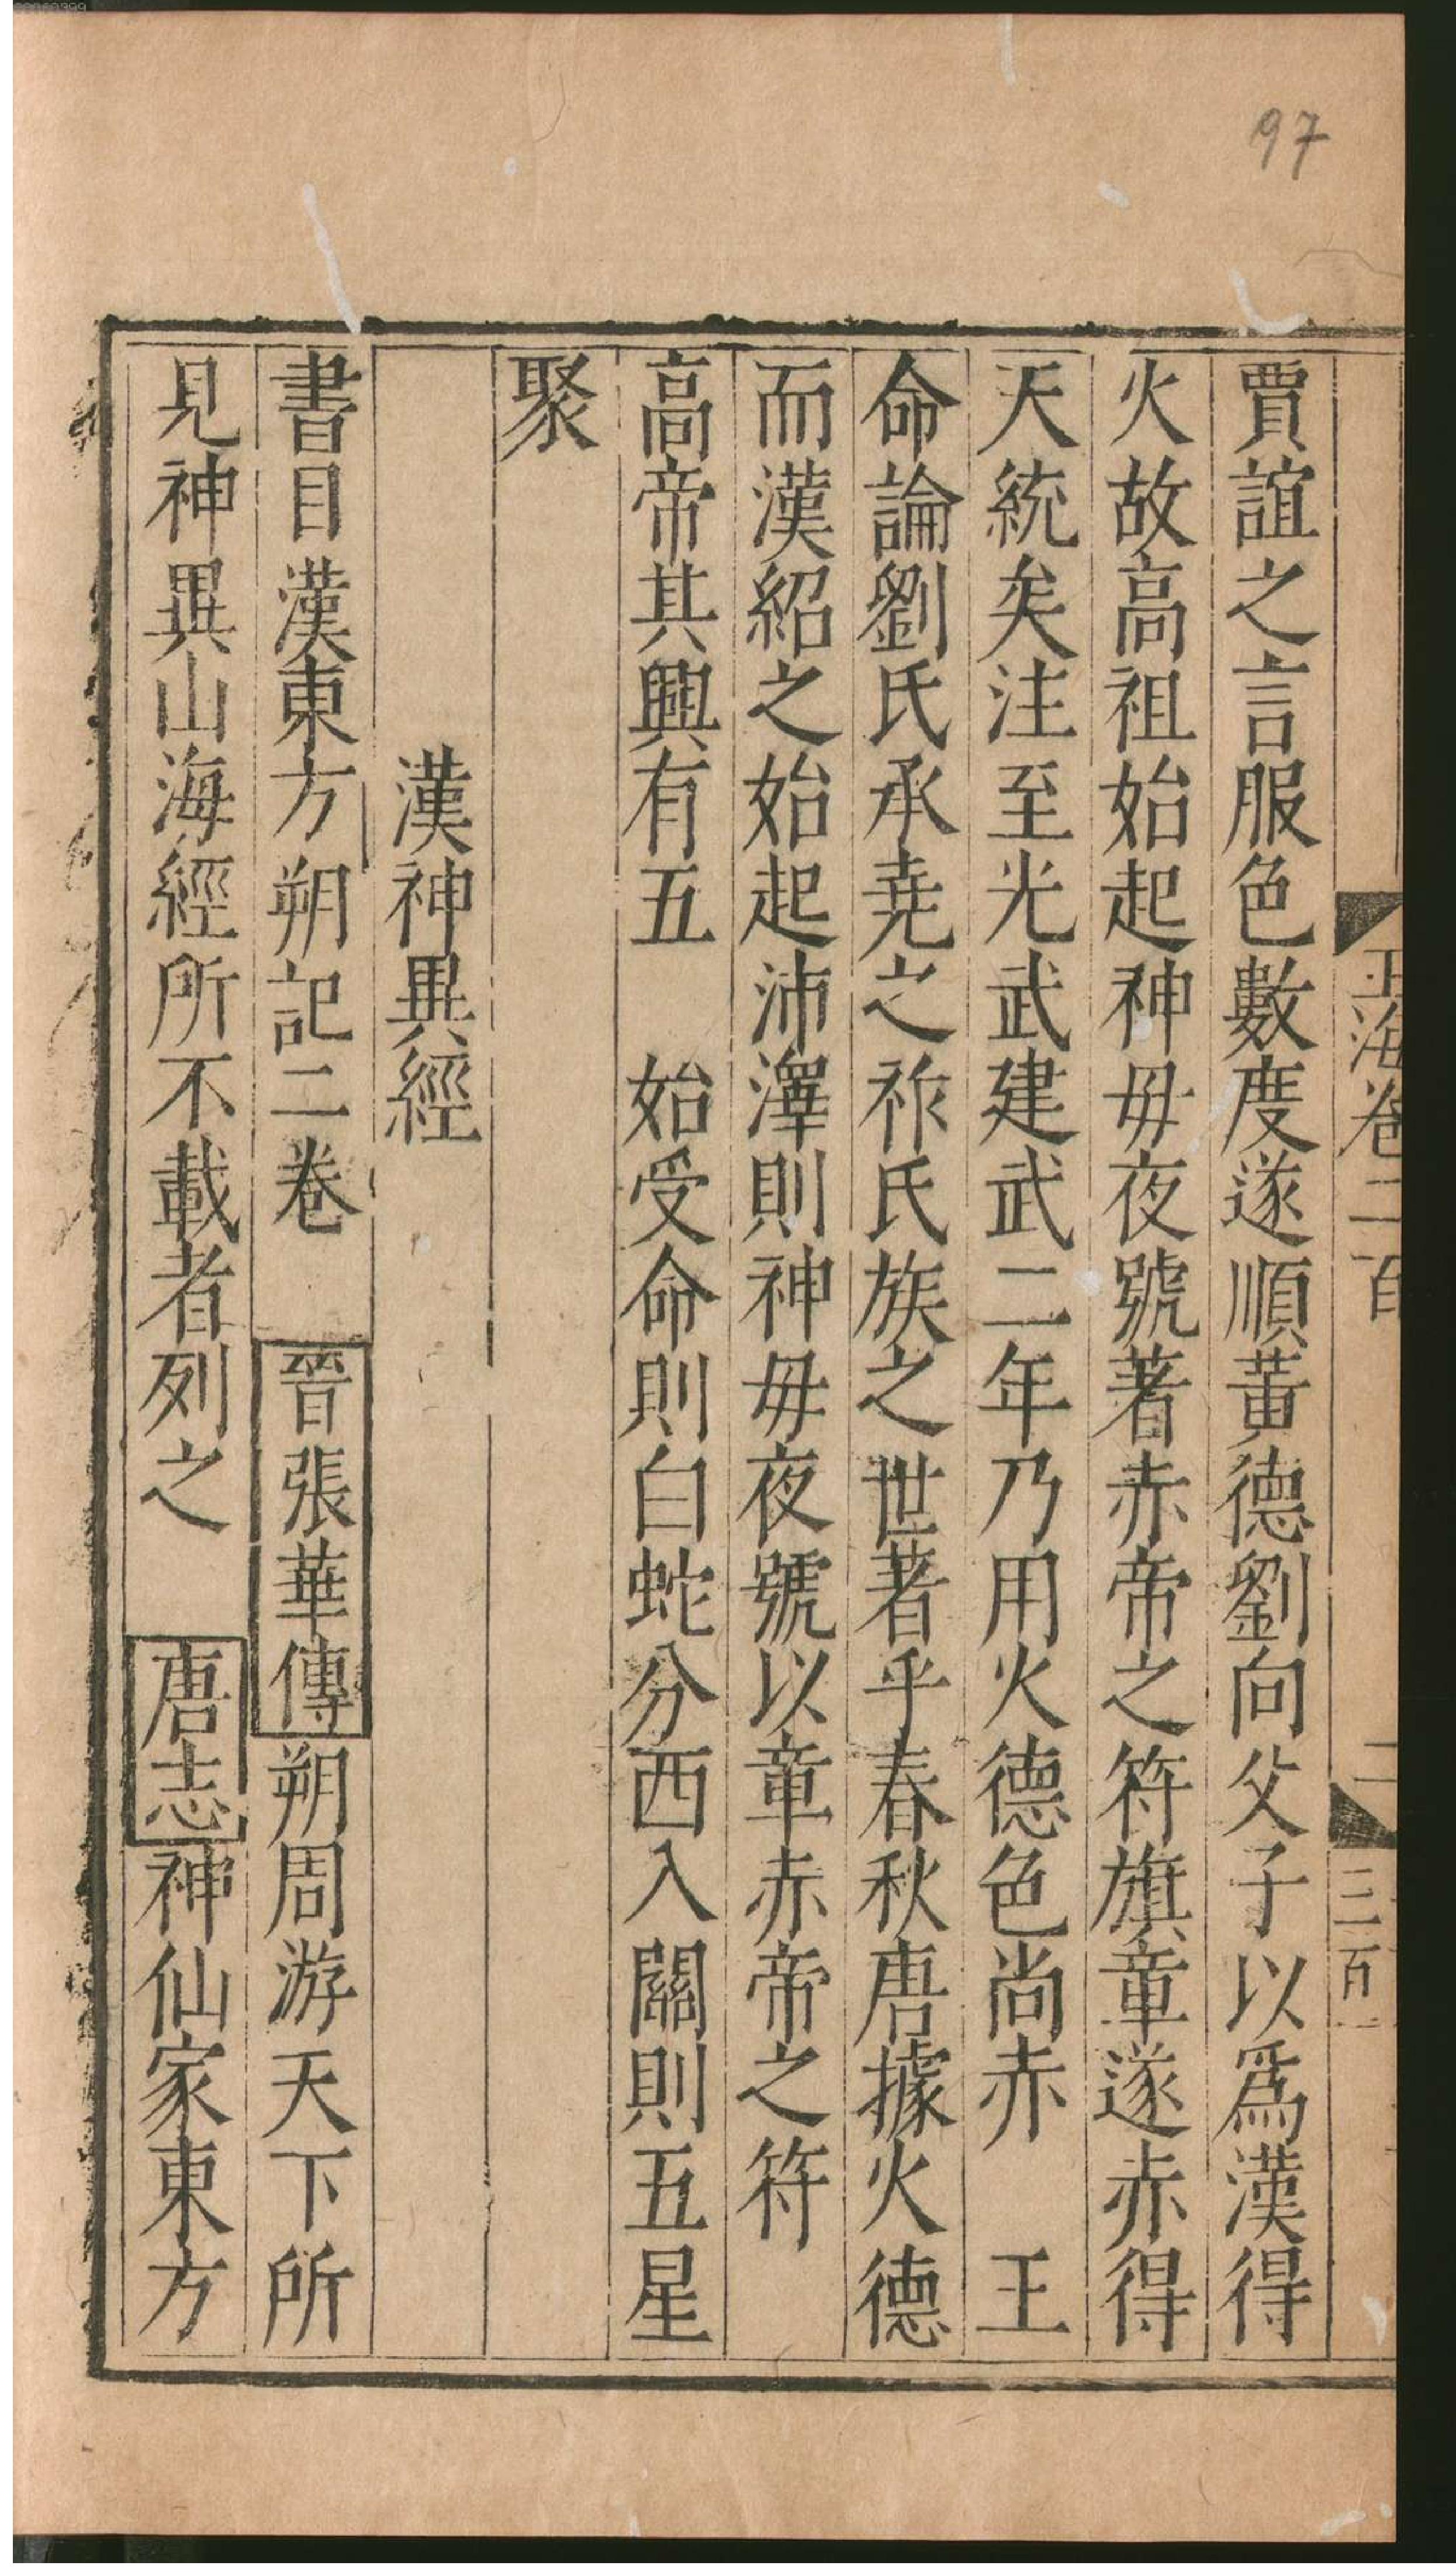 97
玉海卷二百
二
三百
賈誼之言服色數度遂順黃德劉向父子以爲漢得
火故高祖始起神毋夜號著赤帝之符旗章遂赤得
天統矣注至光武建武二年乃用火德色尚赤　王
命論劉氏承堯之祚氏族之世著乎春秋唐據火德
而漢紹之始起沛澤則神毋夜號以章赤帝之符
高帝其興有五　始受命則白蛇分西入關則五星
聚
漢神異經
書目漢東方朔記二卷　晉張華傳朔周游天下所
見神異山海經所不載者列之　唐志神仙家東方